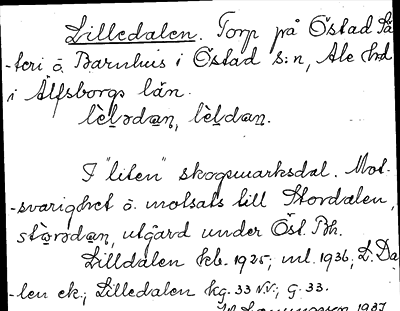 Lilledalen. Torp på Östad Sä
-teri o. Barnhus i Östad s:n, Ale hd
i Älfsborgs län.
lèlədan, lèldan.
I "liten" skogsmarksdal. Mot-
-svarighet o. motsats till Stordalen,
utgård under Öst. Bh.
Lilldalen kb. 1925; ml. 1936; L. Da
-len ek.; Lilledalen kg. 33 NV.; G. 33.
1937